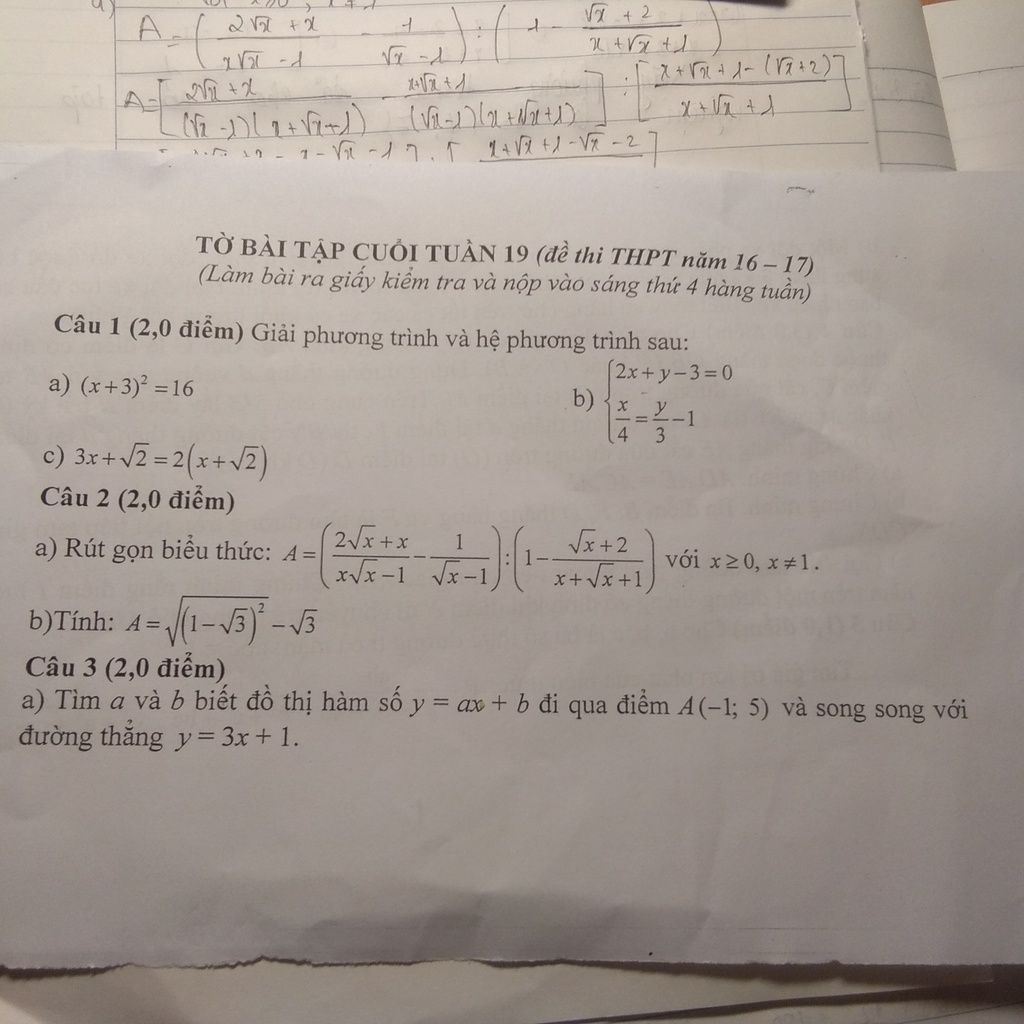 a)
A = (2√x + x / x√x - 1 - 1 / √x - 1) : (1 - √x + 2 / x + √x + 1)
A = [2√x + x / (√x - 1)(x + √x + 1) - x + √x + 1 / (√x - 1)(x + √x + 1)] : [x + √x + 1 - (√x + 2) / x + √x + 1]
- x - √x - 1 x + √x + 1 - √x - 2
TỜ BÀI TẬP CUỐI TUẦN 19 (đề thi THPT năm 16 – 17)
(Làm bài ra giấy kiểm tra và nộp vào sáng thứ 4 hàng tuần)
Câu 1 (2,0 điểm) Giải phương trình và hệ phương trình sau:
a) (x+3)² = 16
b) { 2x + y − 3 = 0
x/4 = y/3 − 1
c) 3x + √2 = 2(x + √2)
Câu 2 (2,0 điểm)
a) Rút gọn biểu thức: A = (2√x + x / x√x − 1 − 1 / √x − 1) : (1 − √x + 2 / x + √x + 1) với x ≥ 0, x ≠ 1.
b)Tính: A = √(1 − √3)² − √3
Câu 3 (2,0 điểm)
a) Tìm a và b biết đồ thị hàm số y = ax + b đi qua điểm A(−1; 5) và song song với
đường thẳng y = 3x + 1.